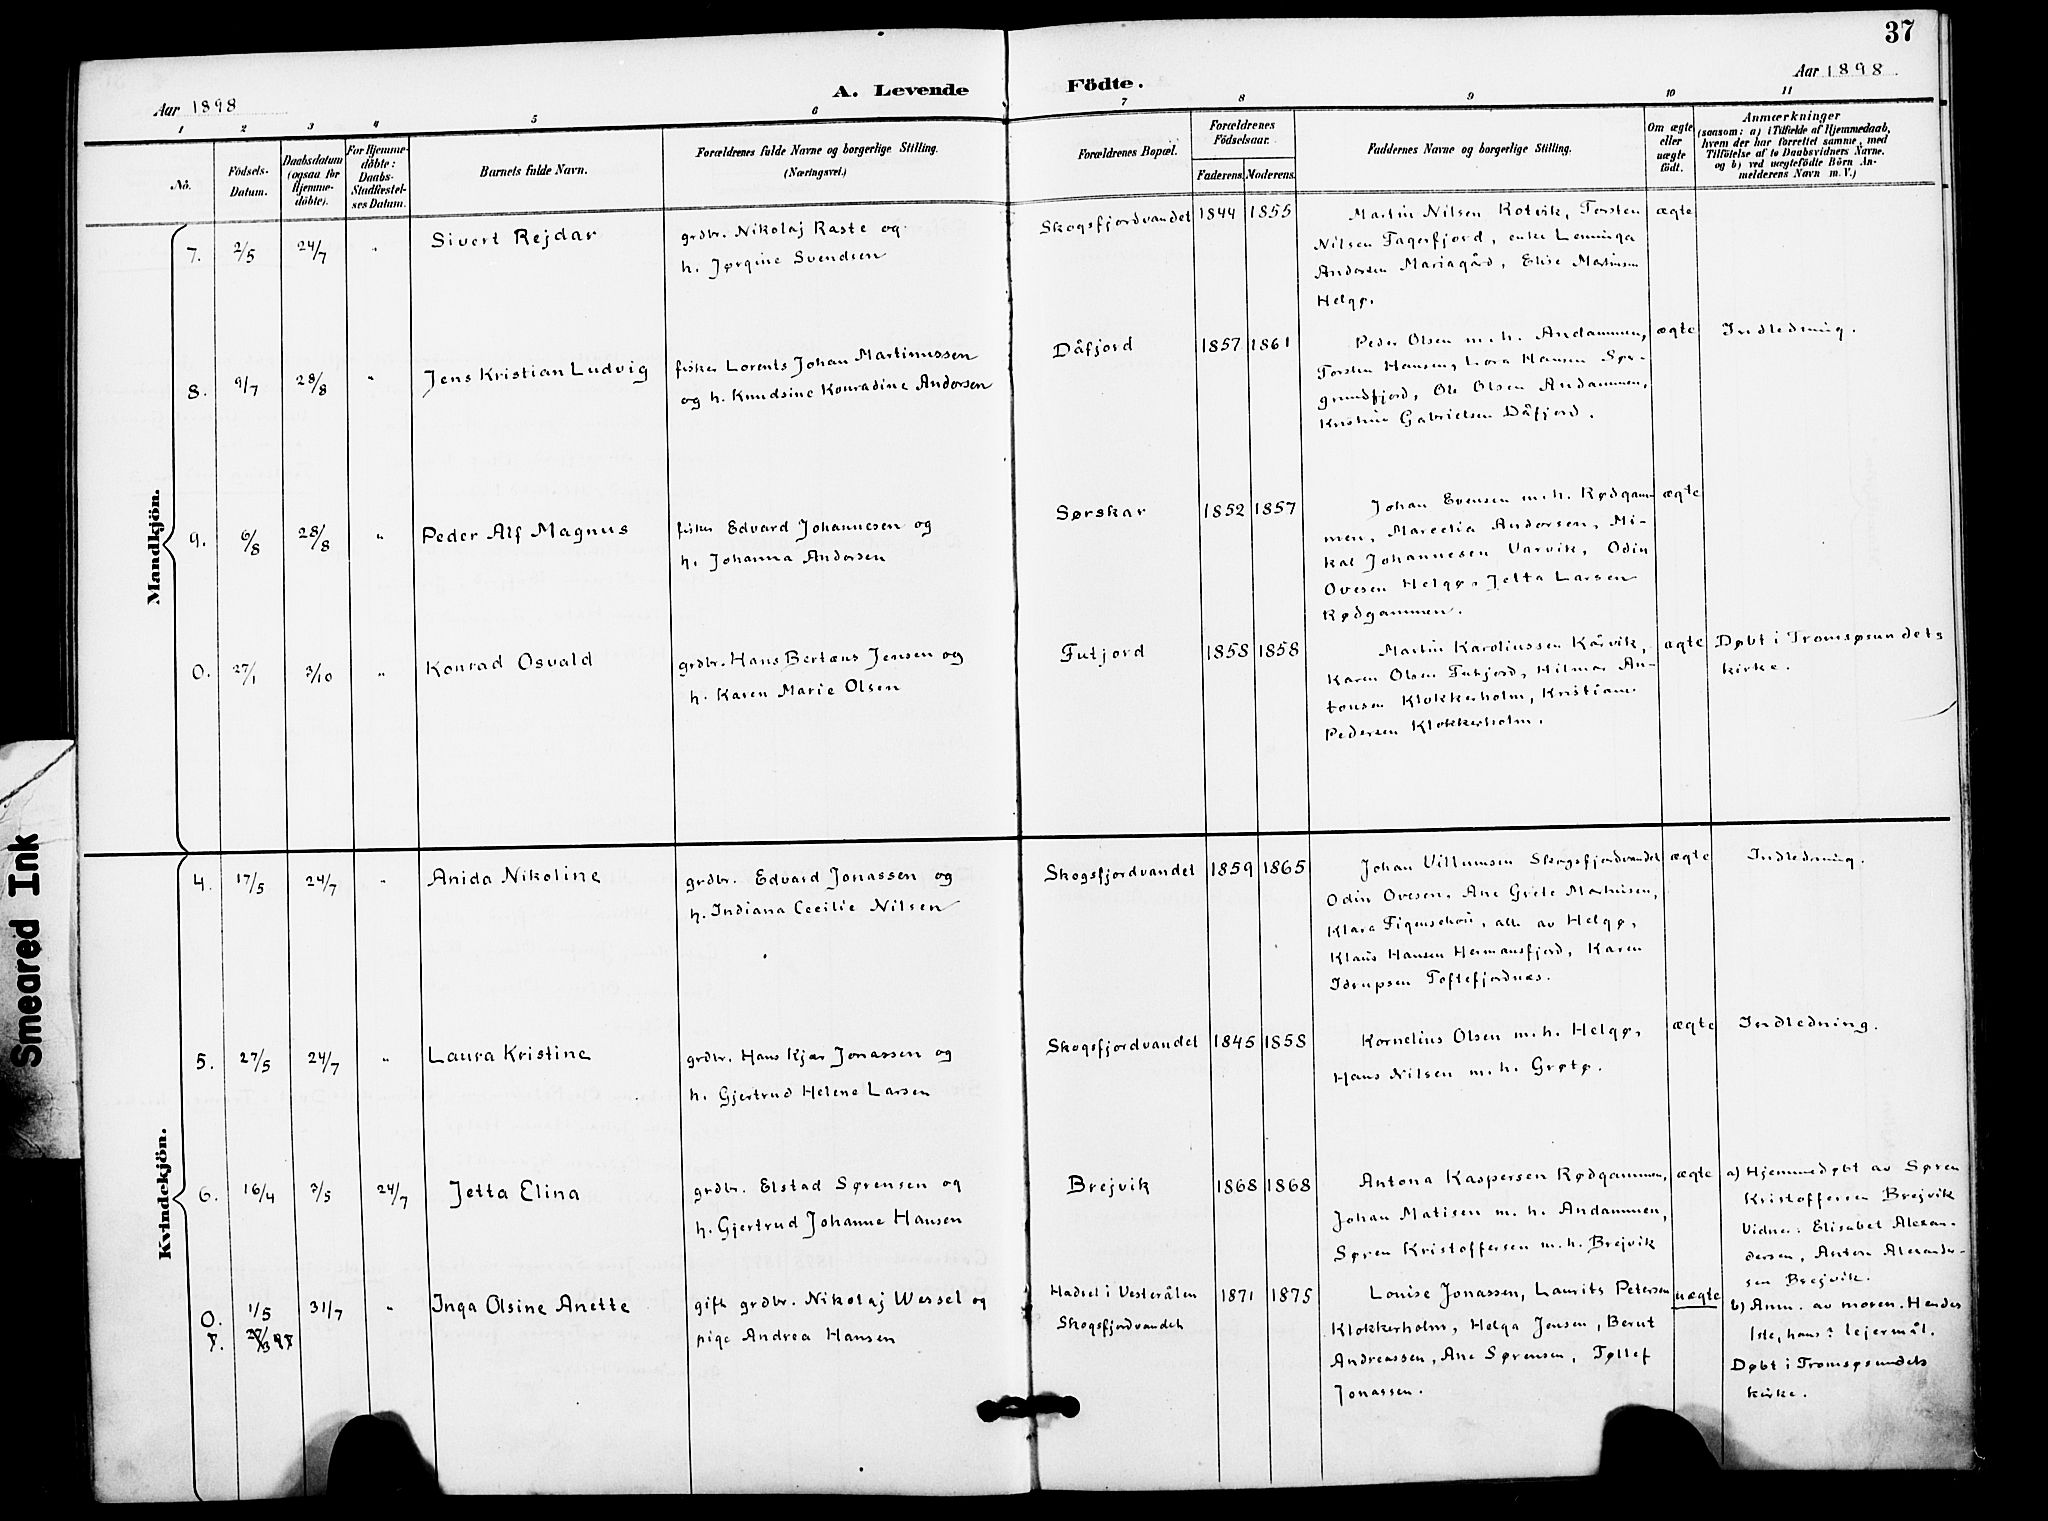 37
Aar 1898
A. Levende Födte.
Aar 1898
1 2 3 4 5 6 7 8 9 10 11
No.
Födsels-Datum.
Daabsdatum (ogsaa for Hjemme-döbte).
For Hjemme-döbte: Daabs-Stadfæstel-ses Datum.
Barnets fulde Navn.
Forældrenes fulde Navne og borgerlige Stilling.
(Næringsvei.)
Forældrenes Bopæl.
Forældrenes Födselsaar.
Faderens. Moderens.
Faddernes Navne og borgerlige Stilling.
Om ægte eller uægte födt.
Anmærkninger
(saasom: a) i Tilfælde af Hjemmedaab,
hvem der har forrettet samme, med
Tilföielse af to Daabsvidners Navne.
og b) ved uægtefödte Börn An-
melderens Navn m. V.)
Mandkjön.
7. 2/5 24/7 " Sivert Rejdar
grdbr. Nikolaj Raste og
h. Jørgine Svendsen
Skogsfjordvandet 1844 1855
Martin Nilsen Kotvik, Torsten
Nilsen Fagerfjord, enke Lenninga
Andersen Mariagård, Elise Martinsen
Helgø.
ægte
8. 9/7 28/8 " Jens Kristian Ludvig
fisker Lorents Johan Martinussen
og h. Knudsine Konradine Andersen
Dåfjord 1857 1861
Peder Olsen m. h. Andammen,
Torsten Hansen, Lora Hansen Sør-
grundfjord, Ole Olsen Andammen,
Kristine Gabrielsen Dåfjord.
ægte
Indledning.
9. 6/8 28/8 " Peder Alf Magnus
fisker Edvard Johannesen og
h. Johanna Andersen
Sørskar 1852 1857
Johan Evensen m. h. Rødgam-
men, Marcelia Andersen, Mi-
kal Johannesen Varvik, Odin
Ovesen Helgø, Jetta Larsen
Rødgammen.
ægte
0. 27/1 3/10 " Konrad Osvald
grdbr. Hans Bertæus Jensen og
h. Karen Marie Olsen
Futjord 1858 1858
Martin Karoliussen Kårvik,
Karen Olsen Futjord, Hilmar An-
tonsen Klokkerholm, Kristiane
Pedersen Klokkerholm.
ægte
Døbt i Tromsøsundets
kirke.
Kvindekjön.
4. 17/5 24/7 " Anida Nikoline
grdbr. Edvard Jonassen og
h. Indiana Cecilie Nilsen
Skogsfjordvandet 1859 1865
Johan Villumsen Skogsfjordvandet
Odin Ovesen, Ane Grete Martinsen,
Klara Figenschou, alle av Helgø,
Klaus Hansen Hermansfjord, Karen
Idrupsen Toftefjordnæs.
ægte
Indledning.
5. 27/5 24/7 " Laura Kristine
grdbr. Hans Kjær Jonassen og
h. Gjertrud Helene Larsen
Skogsfjordvandet 1845 1858
Kornelius Olsen m. h. Helgø,
Hans Nilsen m. h. Grøtø.
ægte
Indledning.
6. 16/4 3/5 24/7 Jetta Elina
grdbr. Elstad Sørensen og
h. Gjertrud Johanne Hansen
Brejvik 1868 1868
Antona Kaspersen Rødgammen,
Johan Matisen m. h. Andammen,
Søren Kristoffersen m. h. Brejvik
ægte
a) Hjemmedøbt av Søren
Kristoffersen Brejvik
Vidner: Elisabet Alexan-
dersen, Anton Alexander-
sen Brejvik.
0. 1/5 31/7 " Inga Olsine Anette
gift grdbr. Nikolaj Wessel og
pige Andrea Hansen
Hadsel i Vesterålen
Skogsfjordvandet
1871 1875
Louise Jonassen, Laurits Petersen
Klokkerholm, Helga Jensen, Berut
Andreassen, Ane Sørensen, Tøllef
Jonassen.
uægte
b) Anm. av moren. Hendes
1ste, hans ? lejermål.
Døbt i Tromsøsundets
kirke.
Smeared Ink